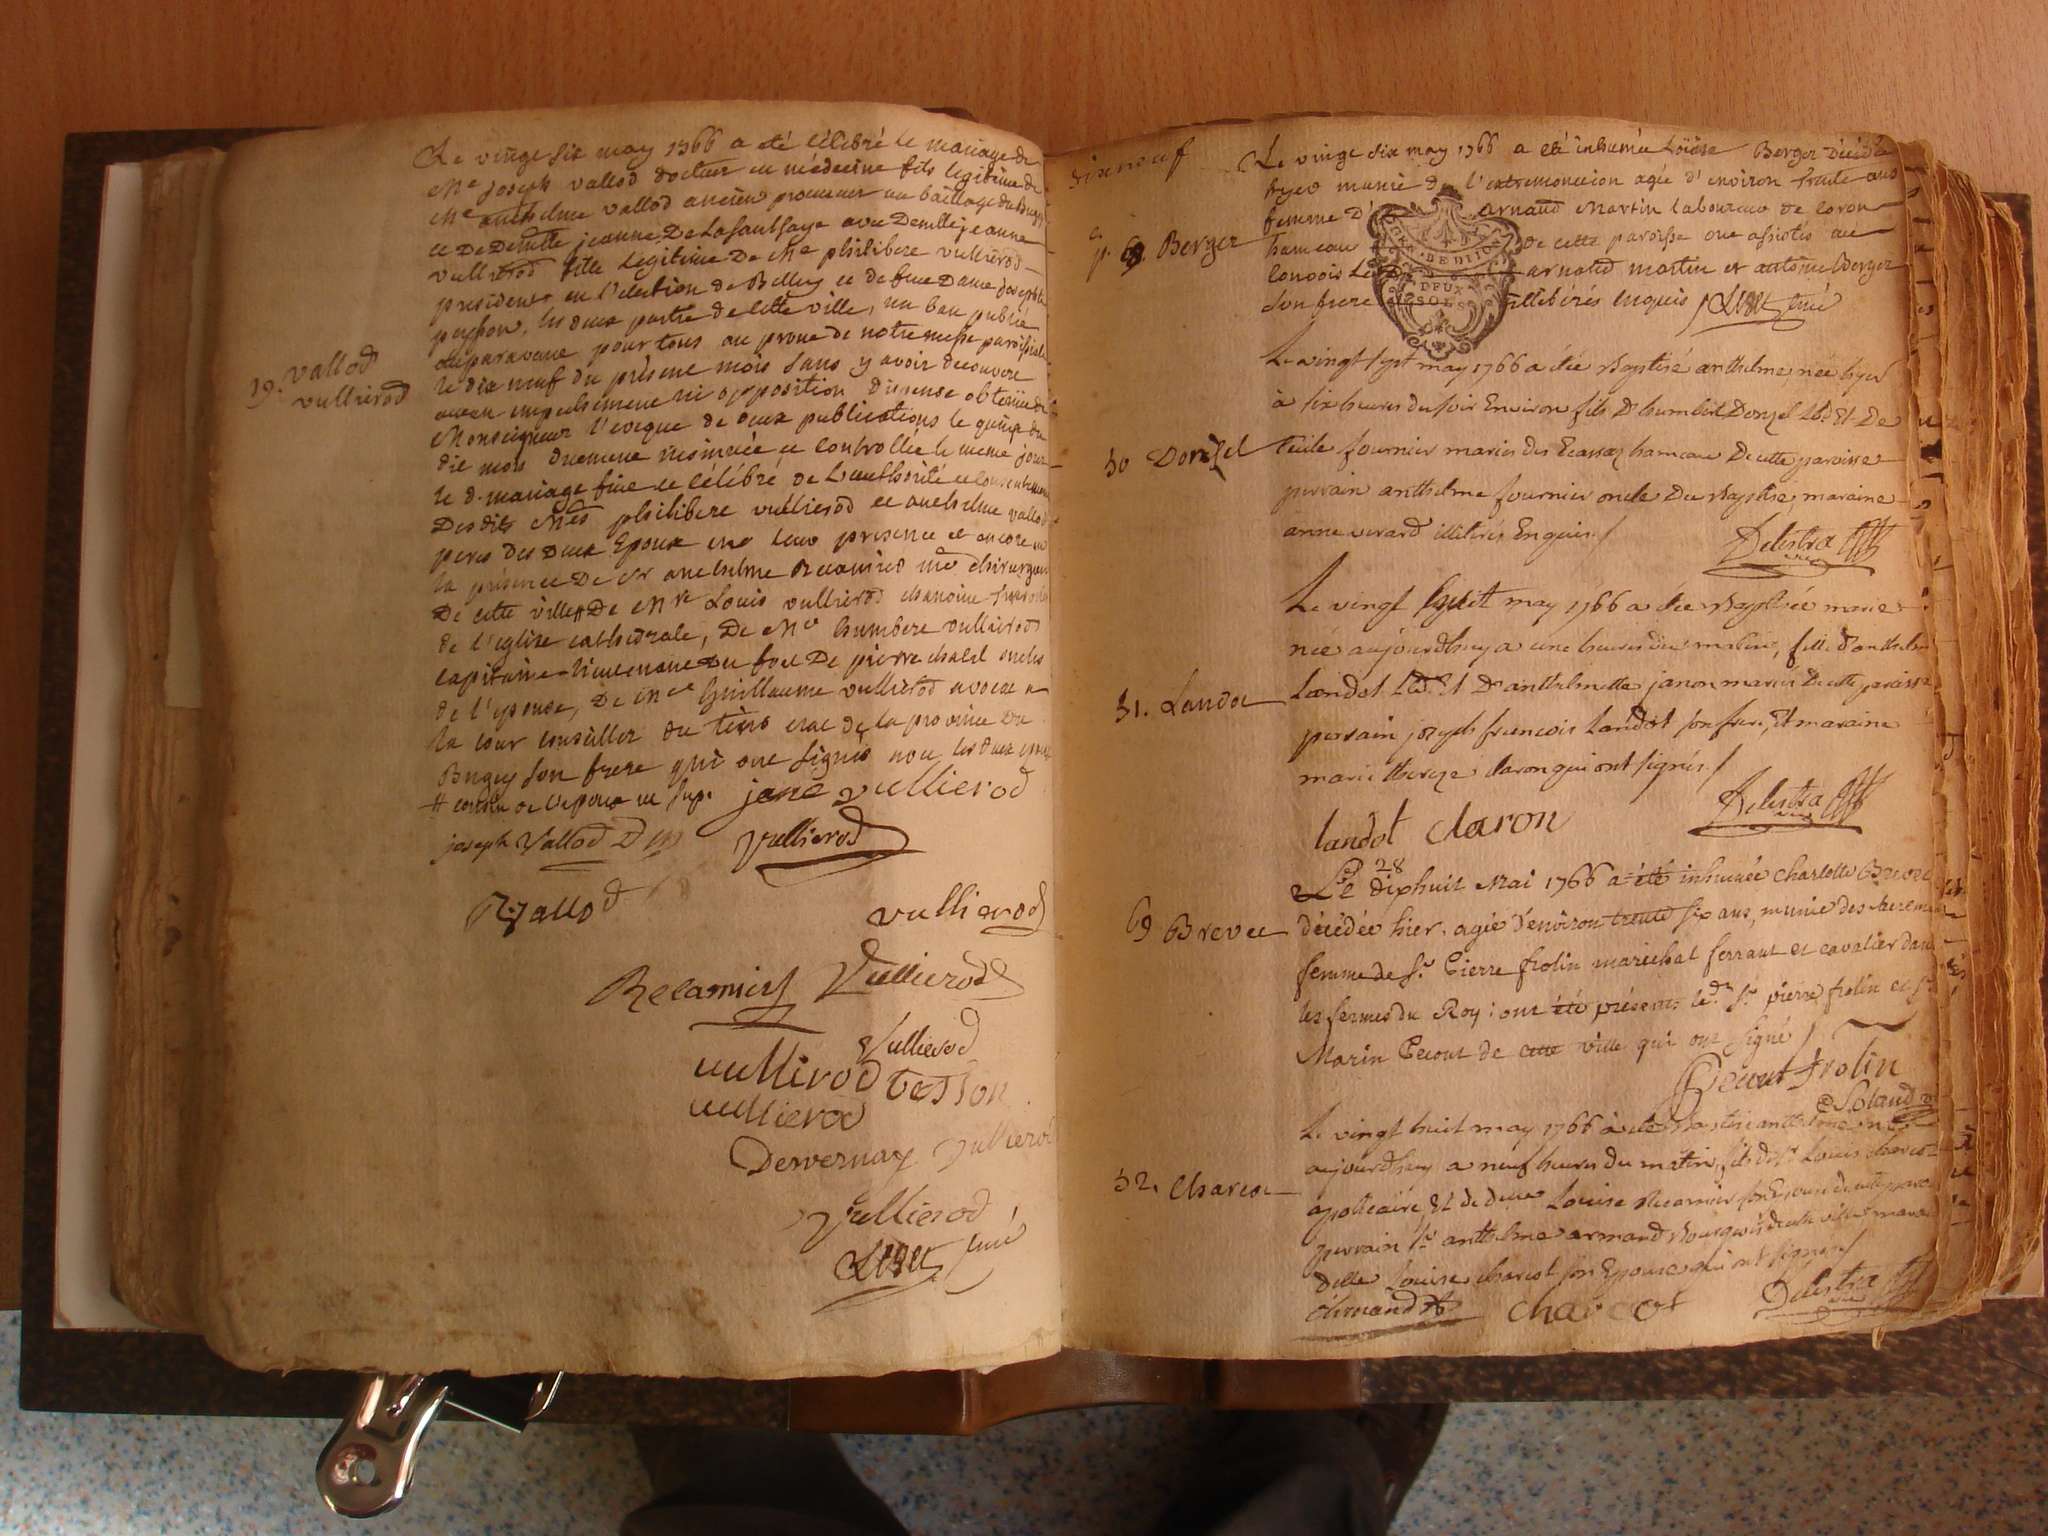 Le vingt six may 1766 a eté célébré le mariage de
Me joseph vallod docteur en médecine fils legitime de
Me anthelme vallod ancien procureur au bailliage du Bugey
et De Demlle jeanne De Lasaulsaye avec Demlle jeanne
vullierod fille Legitime De Me philibere vullierod
président en l'election de Belley et de feue Dame
peysson, les deux partie de cette ville, un ban publié
auparavant pour tous au prone de notre messe paroissiale
le dix neuf du présent mois sans y avoir decouvere
aucun empechement ni opposition dispense obtenüe de
Monseigneur l'eveque de deux publications le quinze du
dit mois duement insinuée et controllée le meme jour
le d. mariage fait et célébré de L'authorité et consentement
Desdits Mes philibere vullierod et anthelme vallod
peres des deux Epoux en leur presence et encore en
la présence De sr anthelme Recamier me chirurgien
De cette ville # De Mre Louis vullierod chanoine
de l'eglise cathedrale, De Me humbere vullierod
capitaine lieutenant au fort De pierre chatel oncles
de l'epouse, De Me Guillaume vullierod avocat a
la cour conseiller du tiers etat de la province Du
Bugey son frere qui ont signés avec les deux epoux
# cousin de l'epoux jane vullierod
joseph Vallod D m vullierod
19. vallod
vullierod
Vallod
vullierod
Recamier Vullierod
Vullierod
vullierod tesson
vullierod
Dervernay vullierod
Vullierod
curé
dix neuf
Le vingt six may 1766 a eté inhumée Loüise Berger Décédée
hyer munie de l'extremonction agée d'environ trente ans
femme d' arnaud Martin laboureur de Coron
hameau de cette paroisse ont assistés au
convois Led. arnaud martin et antoine Berger
son frere illitérés enquis / curé
DEUX
SOLS
Berger
Le vingt sept may 1766 a étée Baptisé anthelme, née hyer
à six heures du soir Environ fils D'humbert Dorzel Led. Et De
Cécile fournier mariés des Ecassaz hameau De cette paroisse
parrain anthelme fournier oncle Du Baptisé, maraine
anne verard illitérés Enquis /
Delestra
50 Dorzel
Le vingt huit may 1766 a étée Baptisée marie
née aujourdhuy a une heures du matin, fille d'anthelme
Landot Led. Et D'anthelmette janon mariés De cette paroisse
parrain joseph francois Landot son frere, Et maraine
marie therese claron qui ont signés /
Delestra
landot Claron
51. Landot
28
Le dixhuit Mai 1766 a été inhumée Charlotte Brevet
décédée hier, agée d'environ trente six ans, munie des sacremens
femme de Sr. Pierre frolin maréchal ferrant et cavalier dans
les fermes du Roy : ont été présens led. Sr. pierre frolin et Sr
Marin Pecout de cette ville qui ont signé /
Pecout frolin
69 Brevet
Le vingt huit may 1766 a été Baptisé anthelme né
aujourdhuy a neuf heures Du matin, fils de Sr Louis charcot
apoticaire, Et de Dame Louise Recamier son Epouse de cette paroisse
parrain Sr anthelme armand Bourgeois de cette ville maraine
Delle Louise charcot son Epouse qui ont signés /
armand charcot Delestra
52. Charcot